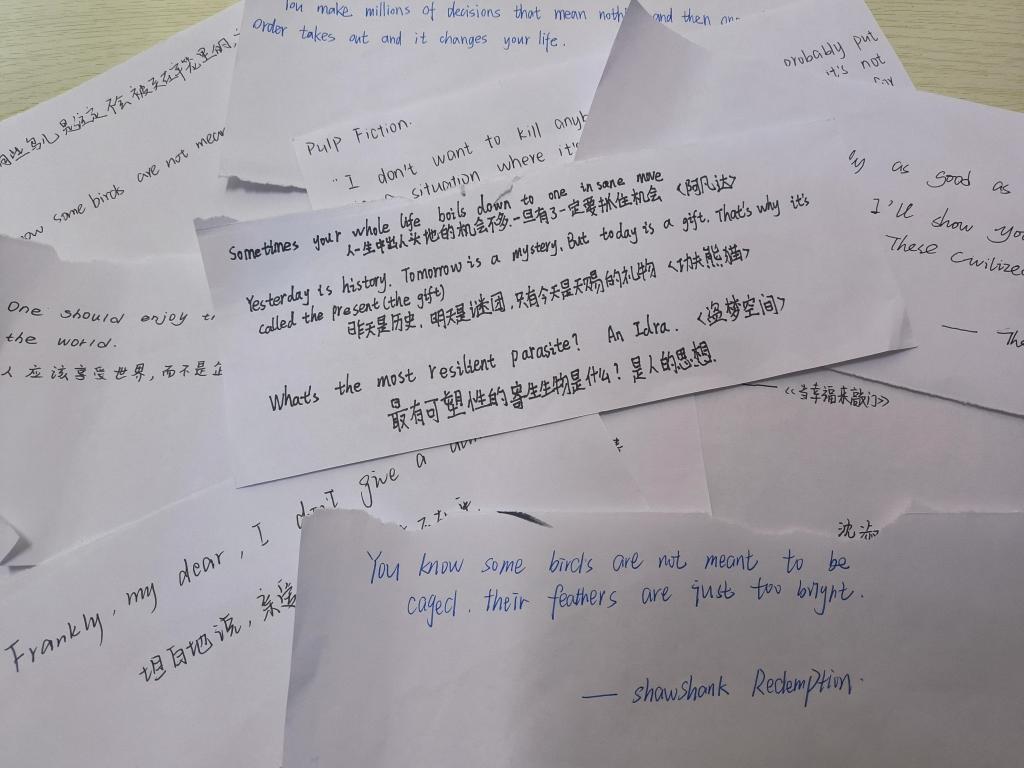 You make millions of decisions that mean noth and then one
order takes out and it changes your life.
probably put
it's not
有些鸟儿是注定不会被关在牢笼里的,
now some birds are not mean
Pulp Fiction.
"I don't want to kill anyb
situation where it's
as good as
I'll show you
These Civilized
— The
Sometimes your whole life boils down to one insane move
人一生中出人头地的机会不多.一旦有了一定要抓住机会 <阿凡达>
Yesterday is history. Tomorrow is a mystery. But today is a gift. That's why it's
called the present (the gift)
昨天是历史, 明天是谜团, 只有今天是天赐的礼物 <功夫熊猫>
What's the most resilient parasite? An Idra. <盗梦空间>
最有可塑性的寄生生物是什么? 是人的思想.
One should enjoy th
the world.
人应该享受世界,而不是企
— 《当幸福来敲门》
Frankly, my dear, I don't give a
坦白地说, 亲爱
沈
You know some birds are not meant to be
caged. their feathers are just too bright.
— shawshank Redemption.